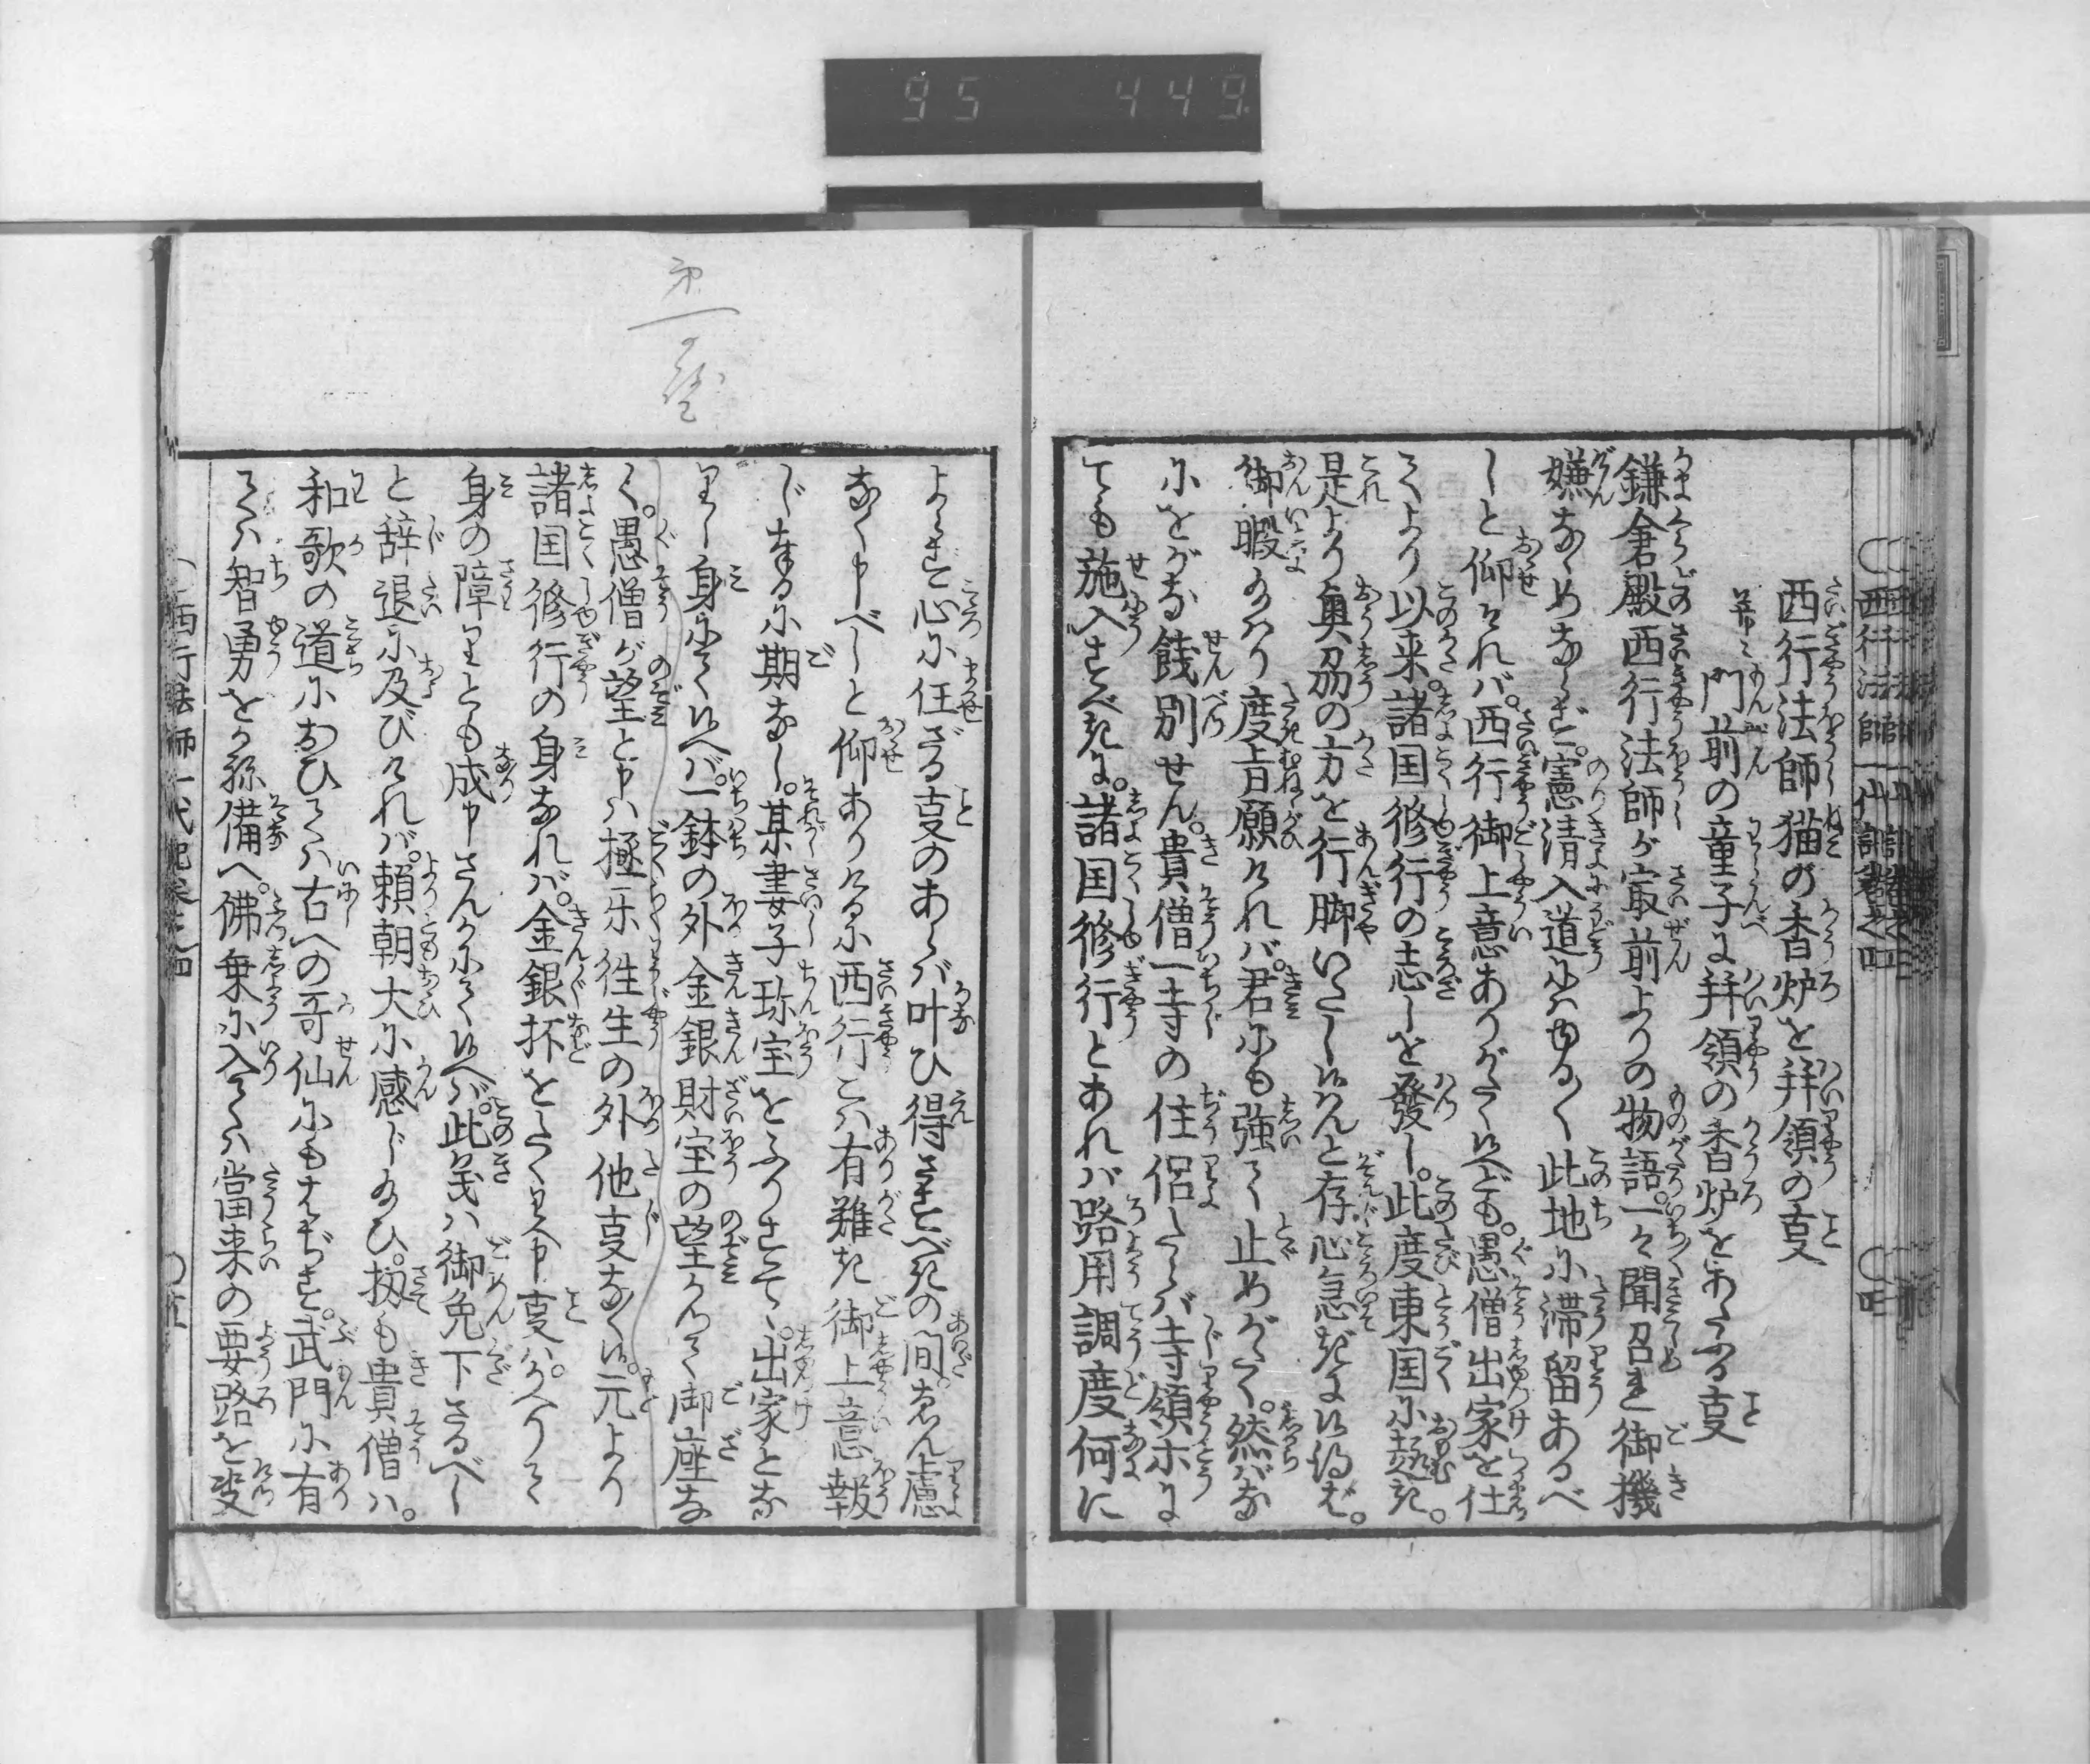 95 449
西行法師猫の香炉を拝領の叓
并ニ門前の童子に拝領の香炉をあたふる叓
鎌倉殿西行法師が最前よりの物語一々聞召れ御機
嫌なゝめならず憲清入道にハゆるく此地に滞留あるべ
しと仰けれバ西行御上意ありがたく候へども愚僧出家を仕
てより以来諸国修行の志しを發し此度東国に趣き
是より奥刕の方を行脚いたし候はんと存心急ぎに候得ば
御暇給はり度旨願けれバ君にも強て止めがたく然バな
にをがな餞別せん貴僧一寺の住侶たらバ寺領ホに
ても施入すべきに諸国修行とあれバ路用調度何に
よらず心に任ざる叓のあらバ叶ひ得さすべきの間ゑん慮
なく申べしと仰ありけるに西行こハ有難き御上意報
じ奉るに期なし某妻子珍宝をふりすて出家とな
りし身にて候へバ一鉢の外金銀財宝の望かつて御座な
く愚僧が望と申ハ極楽往生の外他叓なく候元より
諸国修行の身なれバ金銀抔をたくわへ申叓ハかへりて
身の障りとも成申さんかにて候へバ此義ハ御免下さるべし
と辞退に及びけれバ頼朝大に感じ給ひ扨も貴僧ハ
和歌の道におひてハ古への哥仙にもはぢず武門に有
てハ智勇をかね備へ佛乗に入てハ當来の要路を
西行法師一代記巻之四